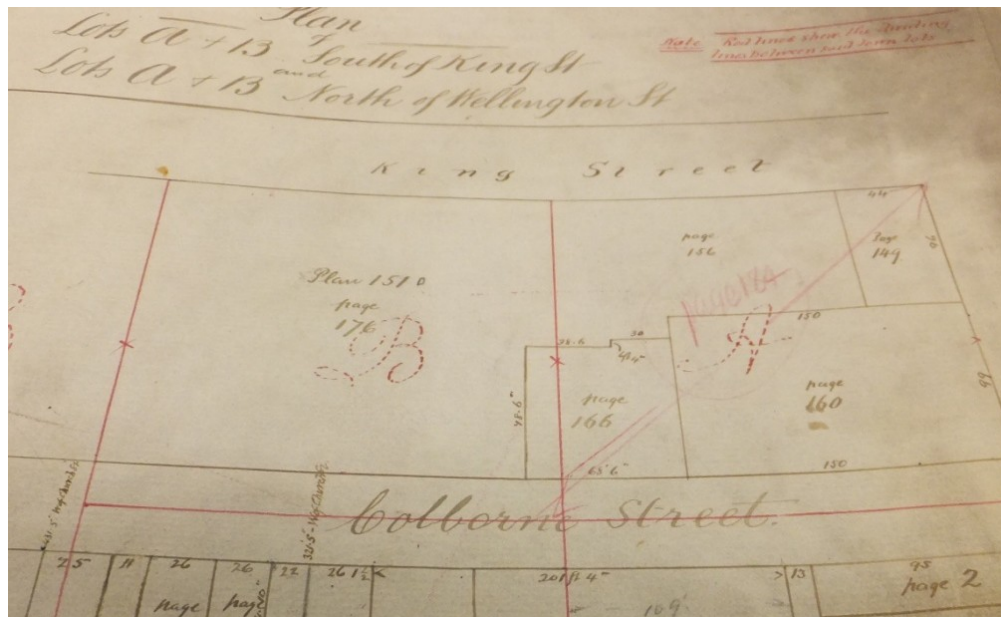 Plan
of
Lots A + B South of King St
and
Lots A + B North of Wellington St
Note Red lines show the dividing
lines between said Town lots
King Street
44
page
156
page
149
90
Plan 151 D
page
176
page 184
B
A
150
38.6
30
99
page
160
page
166
48.6"
65'6"
150
Colborne Street.
25
11
26
26
22
26 1/2
201 ft 4"
13
95
page 2
page
page
109